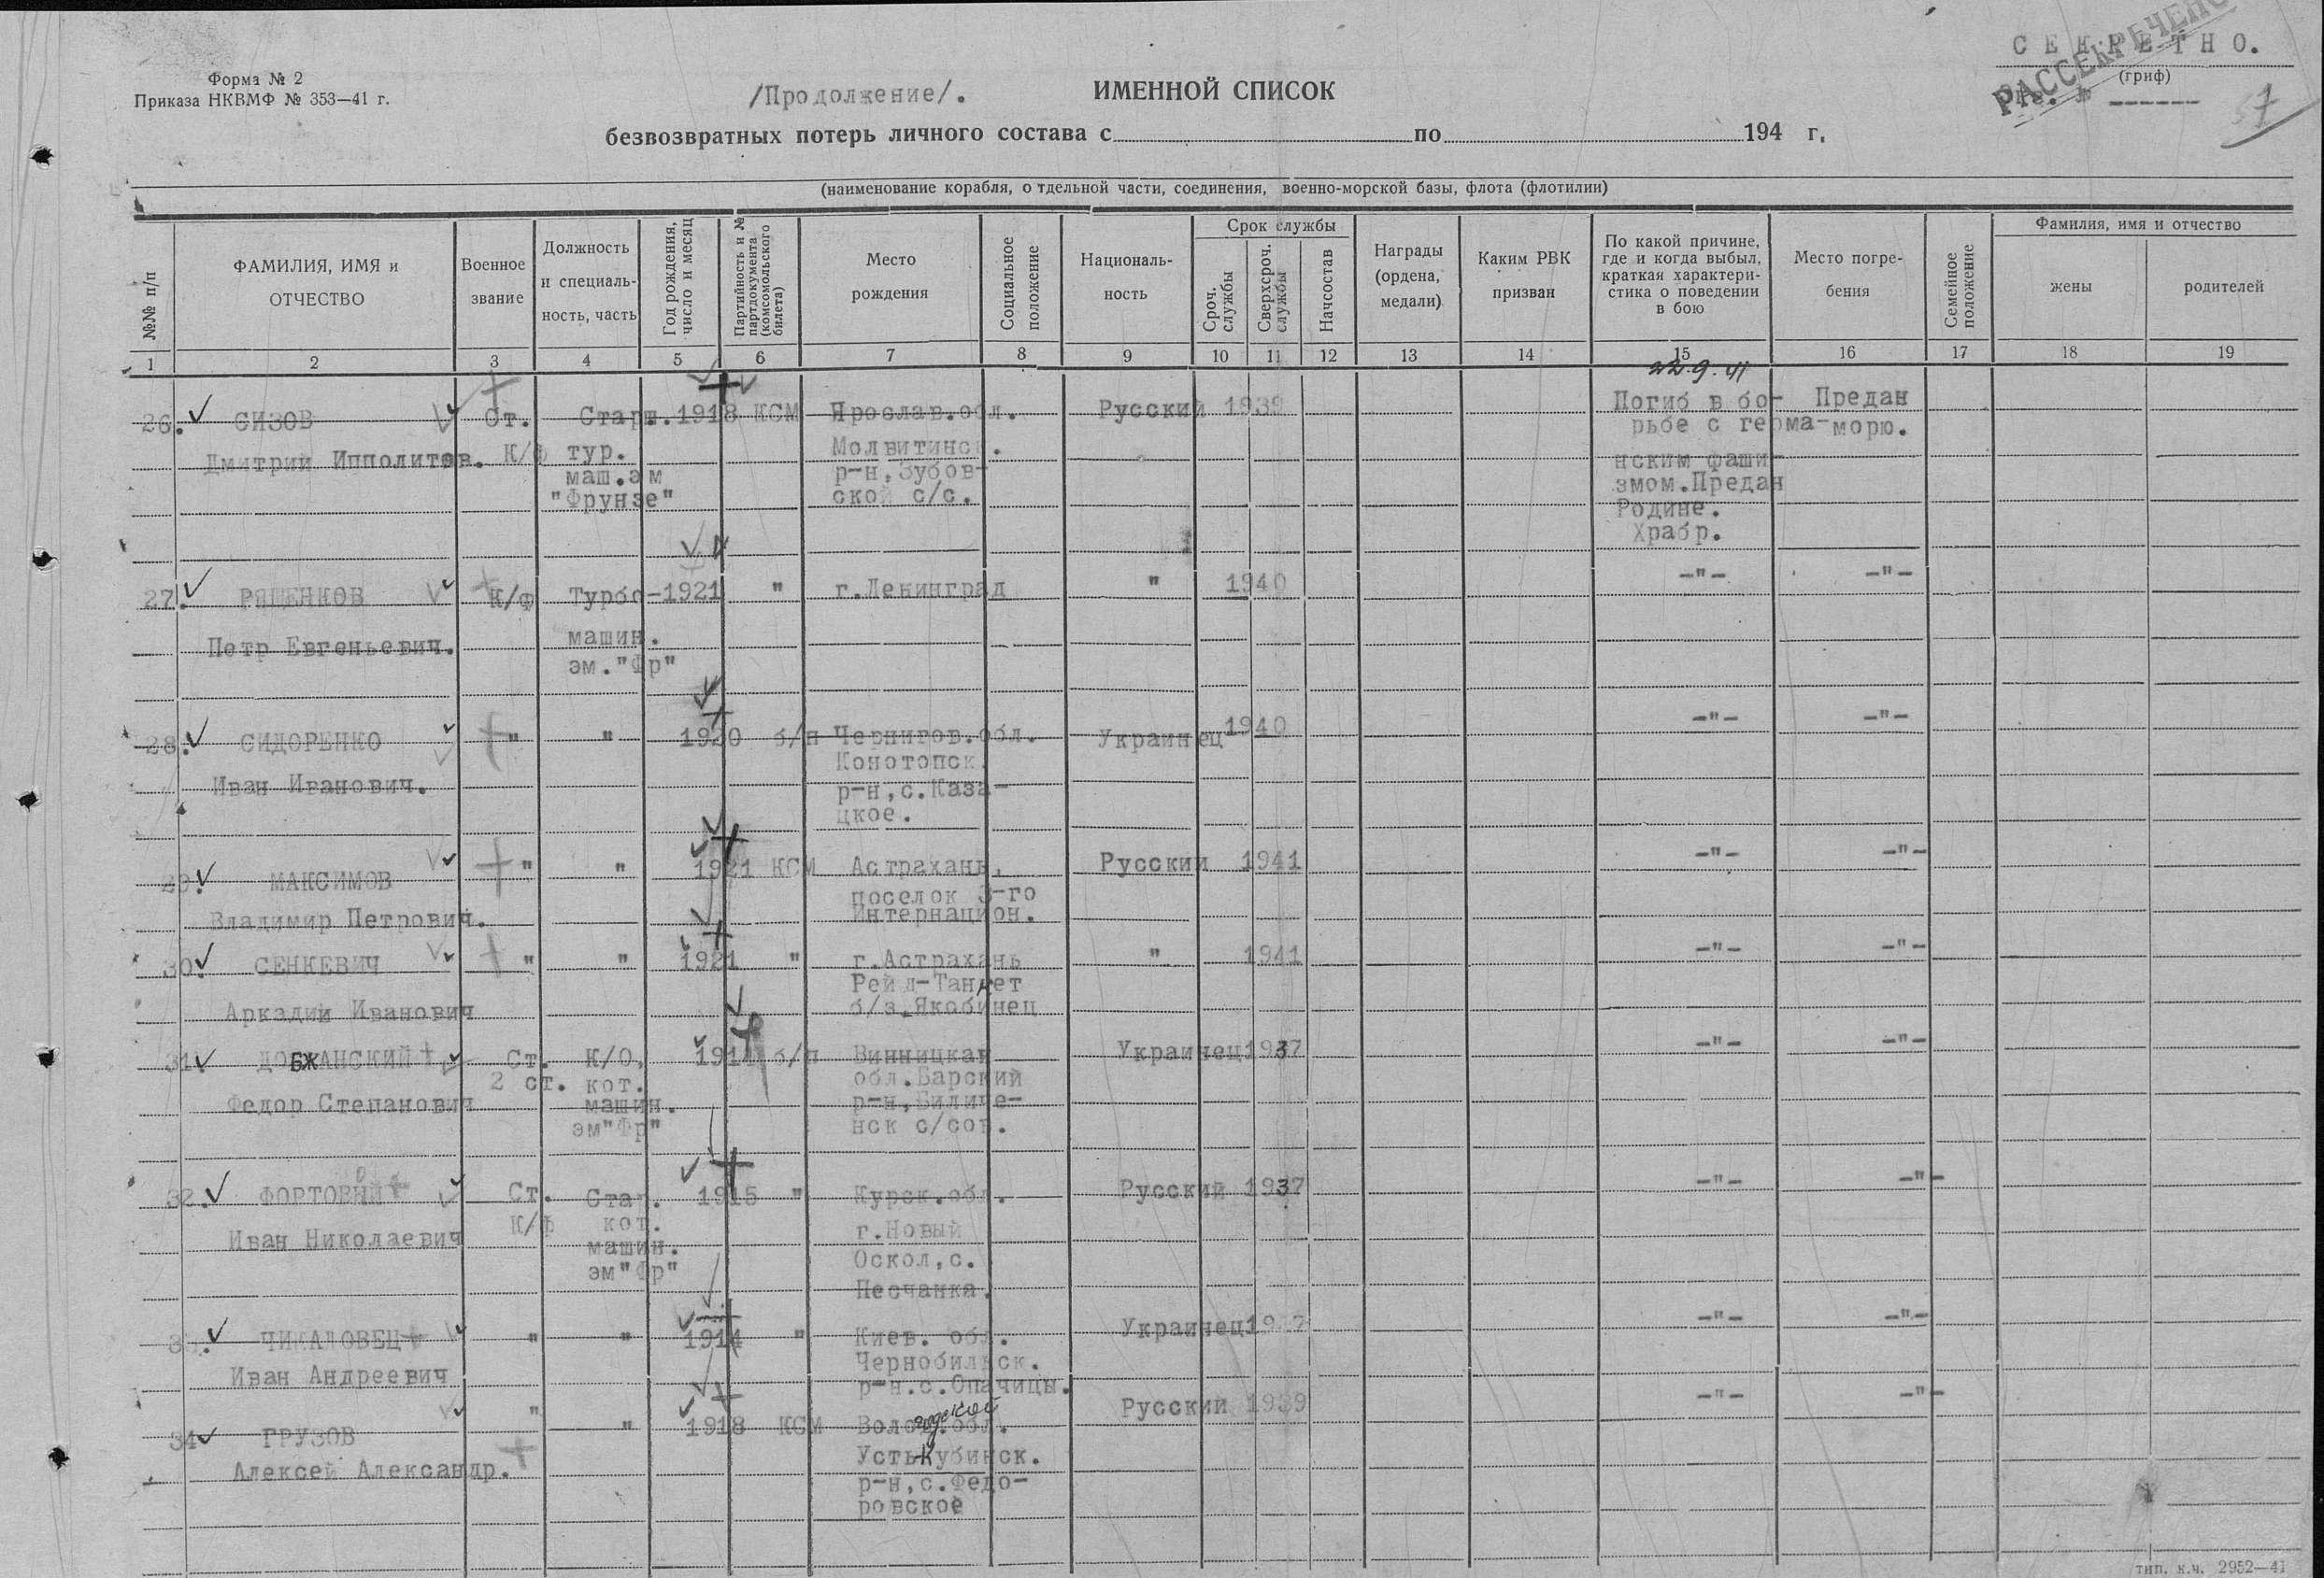 Форма № 2
Приказа НКВМФ № 353—41 г.
СЕКРЕТНО.
(гриф)
РАССЕКРЕЧЕНО
57
/Продолжение/. ИМЕННОЙ СПИСОК
безвозвратных потерь личного состава с по 194 г.
(наименование корабля, отдельной части, соединения, военно-морской базы, флота (флотилии)
№№ п/п
ФАМИЛИЯ, ИМЯ и
ОТЧЕСТВО
Военное
звание
Должность
и специаль-
ность, часть
Год рождения,
число и месяц
Партийность и №
партдокумента
(комсомольского
билета)
Место
рождения
Социальное
положение
Националь-
ность
Срок службы
Сроч.
службы
Сверхсроч.
службы
Начсостав
Награды
(ордена,
медали)
Каким РВК
призван
По какой причине,
где и когда выбыл,
краткая характери-
стика о поведении
в бою
Место погре-
бения
Семейное
положение
Фамилия, имя и отчество
жены
родителей
1 2 3 4 5 6 7 8 9 10 11 12 13 14 15 16 17 18 19
22.9.41
26. СИЗОВ Ст. Старш. 1918 КСМ Ярослав.обл. Русский 1939 Погиб в бо- Предан
рьбе с герма- морю.
Дмитрий Ипполитов. К/ф тур. Молвитинск.
нским фаши-
маш.эм р-н,Зубов-
змом.Предан
"Фрунзе" ской с/с.
Родине.
Храбр.
27. РЯЩЕНКОВ К/ф Турбо- 1921 " г.Ленинград " 1940 -"- -"-
Петр Евгеньевич. машин.
эм."Фр"
28. СИДОРЕНКО " " 1920 б/п Чернигов.обл. Украинец 1940 -"- -"-
Конотопск.
Иван Иванович. р-н,с.Каза-
цкое.
29. МАКСИМОВ " " 1921 КСМ Астрахань, Русский 1941 -"- -"-
поселок 3-го
Владимир Петрович. Интернацион.
30. СЕНКЕВИЧ " " 1921 " г.Астрахань " 1941 -"- -"-
Рейд-Танкет
Аркадий Иванович б/з.Якобинец
31. ДОБЖАНСКИЙ Ст. К/О, 1914 б/п Винницкая Украинец 1937 -"- -"-
2 ст. кот. обл.Барский
Федор Степанович машин. р-н,Биличе-
эм"Фр" нск с/сов.
32. ФОРТОВЫЙ Ст. Стар. 1915 " Курск.обл. Русский 1937 -"- -"-
К/ф кот. г.Новый
Иван Николаевич машин. Оскол,с.
эм"Фр" Песчанка.
33. ЧИКАЛОВЕЦ " " 1914 " Киев. обл. Украинец 1937 -"- -"-
Чернобильск.
Иван Андреевич р-н.с.Опачицы.
34 ГРУЗОВ " " 1918 КСМ Вологодской обл. Русский 1939 -"- -"-
Усть-Кубинск.
Алексей Александр. р-н,с.Федо-
ровское
тип. к.ч. 2952—41